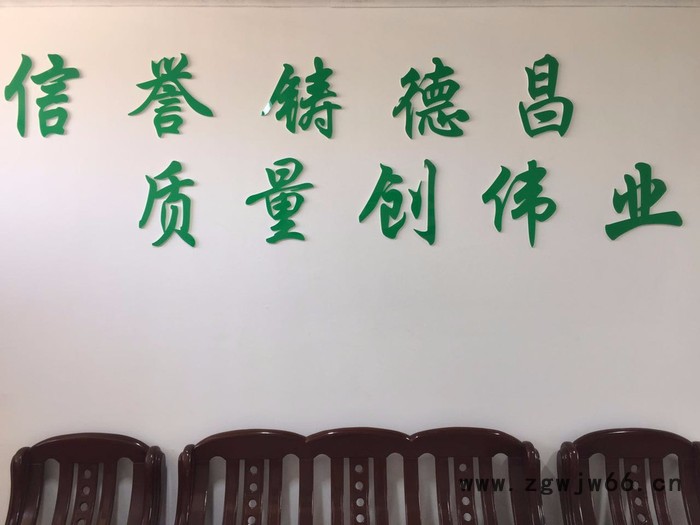 信誉铸德昌
质量创伟业
www.zgwjw66.cn